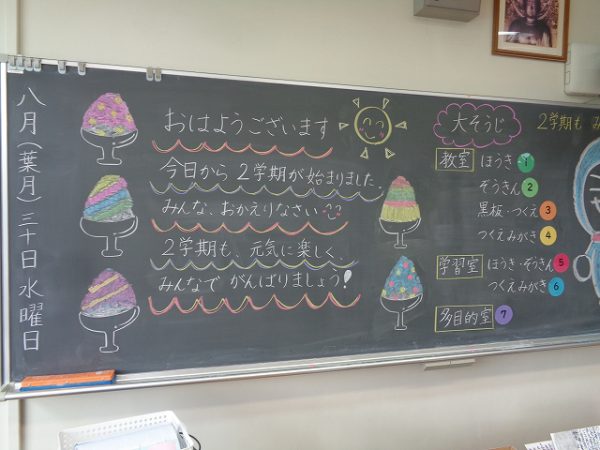 八月(葉月)三十日水曜日
おはようございます
今日から2学期が始まりました。
みんな、おかえりなさい
2学期も、元気に楽しく、
みんなで がんばりましょう!
大そうじ
教室 ほうき 1
ぞうきん 2
黒板・つくえ 3
つくえみがき 4
学習室 ほうき・ぞうきん 5
つくえみがき 6
多目的室 7
2学期も